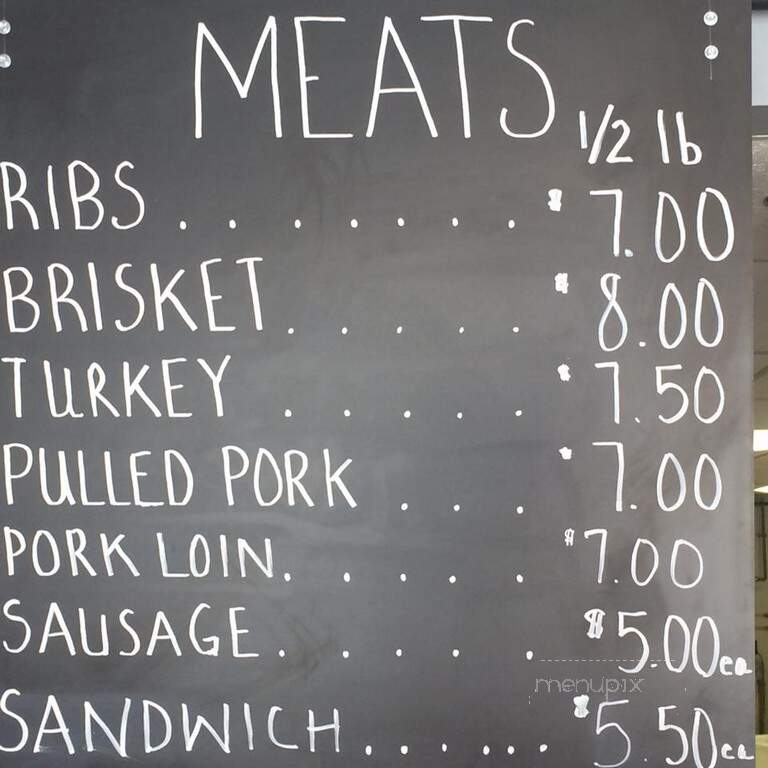 MEATS
1/2 lb
RIBS . . . . . . . $7.00
BRISKET . . . . . $8.00
TURKEY . . . . . $7.50
PULLED PORK . . . $7.00
PORK LOIN. . . . . $7.00
SAUSAGE . . . . . $5.00ea
menupix
SANDWICH . . . . . . $5.50ea